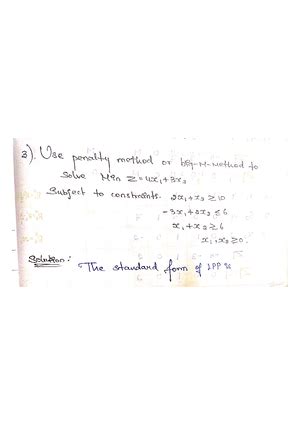 3). Use penalty method or big-M-Method to
Solve Min Z = 4x₁+3x₂
Subject to constraints. 2x₁+x₂ ≥ 10
-3x₁+2x₂ ≤ 6
x₁+x₂ ≥ 6
x₁,x₂ ≥ 0.
Solution:
The standard form of LPP is